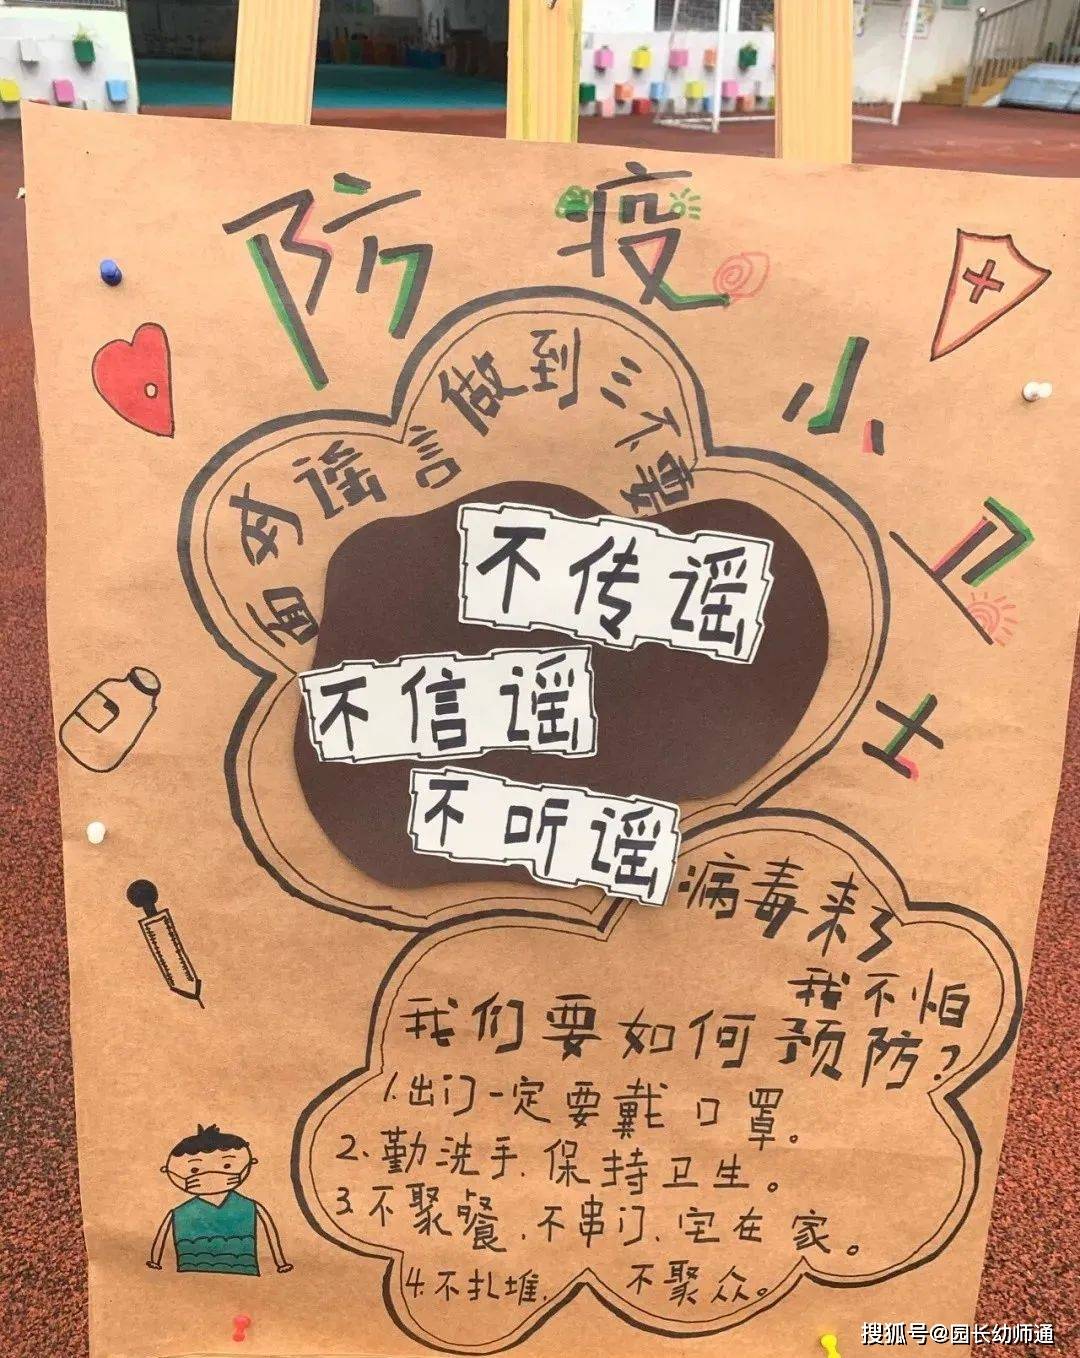 防疫小卫士
面对谣言做到三不要
不传谣
不信谣
不听谣
病毒来了
我不怕
我们要如何预防？
1.出门一定要戴口罩。
2、勤洗手、保持卫生。
3、不聚餐、不串门、宅在家。
4.不扎堆、不聚众。
搜狐号@园长幼师通